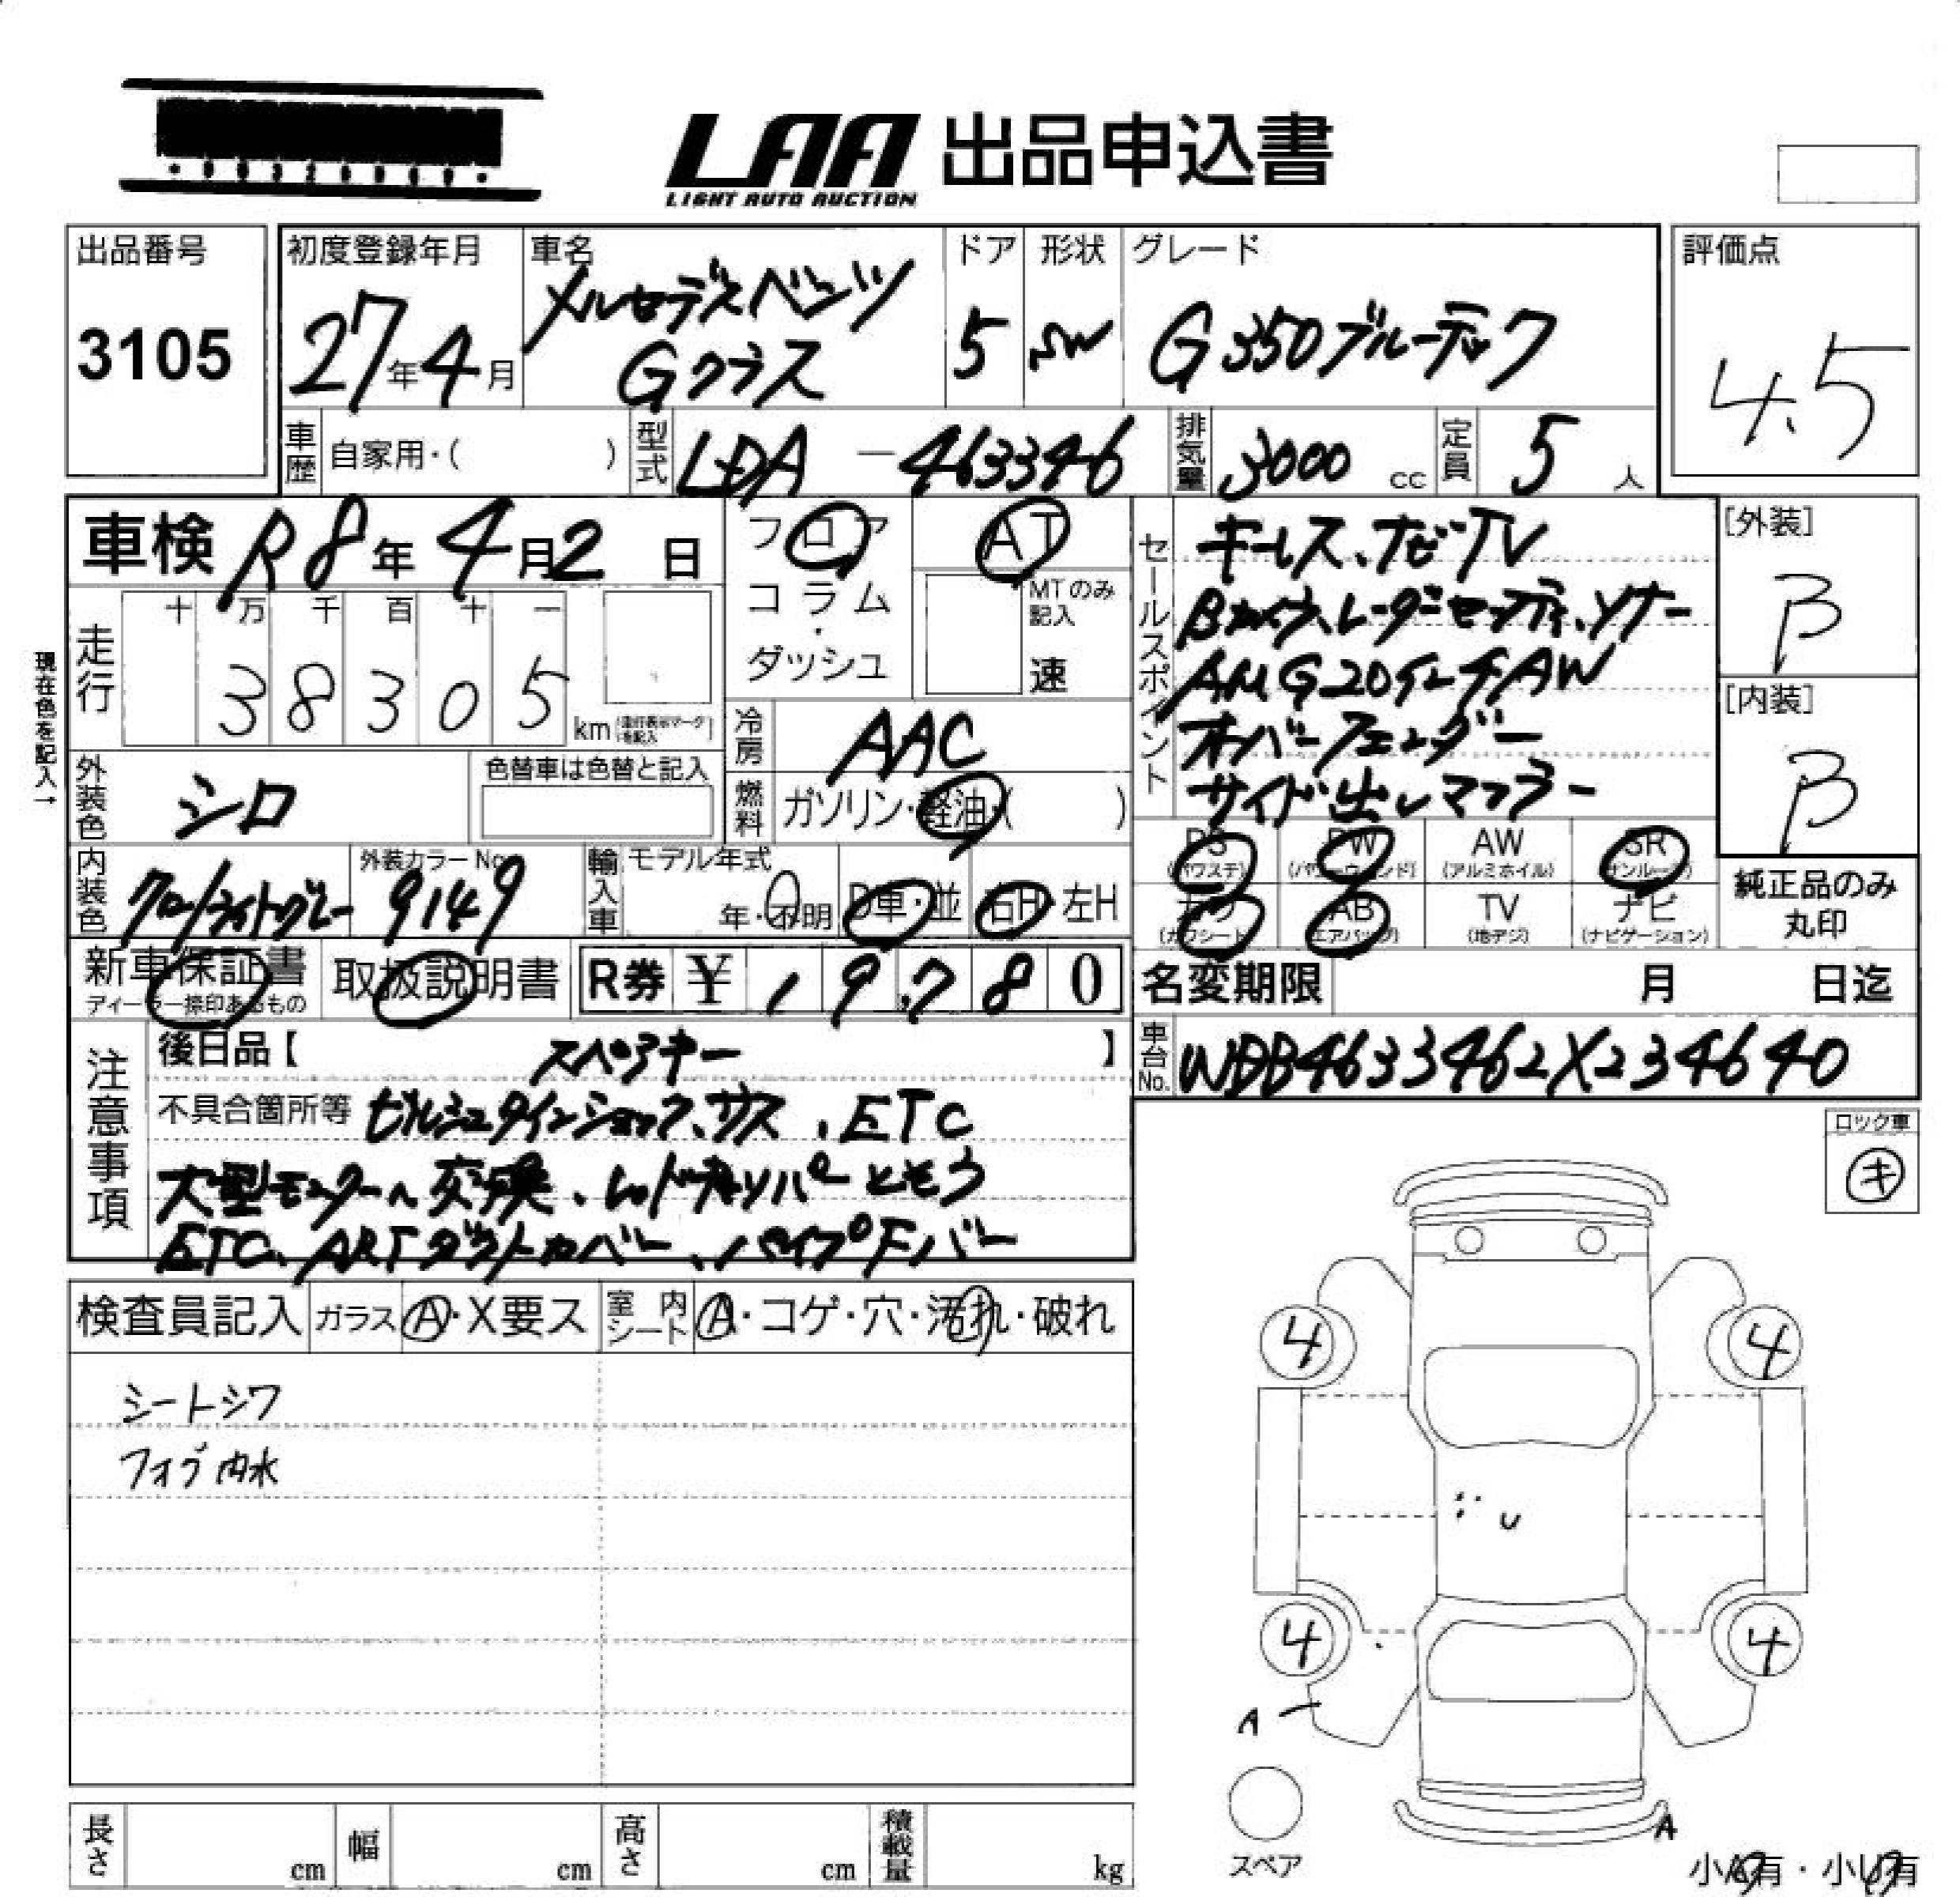 LAA 出品申込書
LIGHT AUTO AUCTION
出品番号
3105
初度登録年月
27年4月
車名
メルセデスベンツ
Gクラス
ドア
5
形状
SW
グレード
G350ブルーテック
評価点
4.5
車歴 自家用・( )
型式 LDA-463346
排気量 3000 cc
定員 5 人
車検 R8年4月2日
フロア
コラム・
ダッシュ
AT
MTのみ記入
速
現在色を記入→
走行
十 万 千 百 十 一
3 8 3 0 5 km (走行表示マークを記入)
冷房 AAC
外装色 シロ
色替車は色替と記入
燃料 ガソリン・軽油・( )
内装色 クロ/ライトグレー
外装カラーNo. 9149
輸入車 モデル年式
年・不明
D車・並
右H・左H
セールスポイント
キーレス、ナビ・TV
Bカメラ、レーダーセーフティ、ソナー
AMG20インチAW
オーバーフェンダー
サイド出しマフラー
[外装]
B
[内装]
B
PS (パワステ)
PW (パワーウィンド)
AW (アルミホイル)
SR (サンルーフ)
カワ (カワシート)
AB (エアバッグ)
TV (地デジ)
ナビ (ナビゲーション)
純正品のみ
丸印
新車保証書
ディーラー捺印あるもの
取扱説明書
R券 ¥ 19,780
名変期限 月 日迄
車台No. WDB4633462X234640
注意事項
後日品【 スペアキー 】
不具合箇所等 ビルシュタインショック、サス、ETC
大型モニターへ交換、レッドキャリパーとそう
ETC、ARTダクトカバー、パイプFバー
ロック車
キ
検査員記入
ガラス A・X要ス
室内シート A・コゲ・穴・汚れ・破れ
シートシワ
フォグ内水
4
4
U
4
4
A
A
スペア
小A有・小U有
長さ cm
幅 cm
高さ cm
積載量 kg